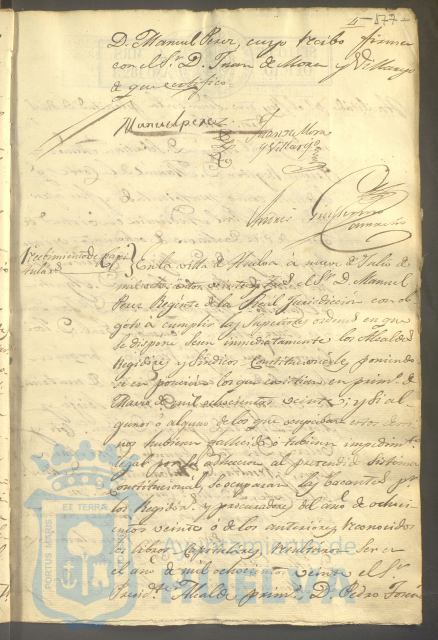 4 - 577 -
D. Manuel Perez, cuyo recibo firma
con el Sr. D. Juan de Mora y Villarejo
de que certifico.
Manuel perez
Juan de Mora
y Villar
Guillermo
Recibimiento de Capi
tulares
En la villa de Huelva á nueve de Julio de
mil ochocientos veinte y tres: el Sr. D. Manuel
Perez Regente de la Real Jurisdiccion con ob
geto á cumplir las Superiores ordenes en que
se dispone cesen inmediatamente los Alcaldes
Regidores y Sindicos Constitucionales poniendo
se en posesion los que existian en primo. de
Marzo de mil ochocientos veinte; y si al
gunos ó alguno de los que ocupaban estos desti
nos hubieren fallecido ó tubieren impedimto.
legal por la adhesion al pretendido sistema
Constitucional, se ocuparan las vacantes por
los Regidores y procuradores del año de ochoci
entos veinte ó de los anteriores; reconocidos
los libros Capitulares resultaron ser en
el año de mil ochocientos veinte el Sr.
Presidte. Alcalde primo. D. Pedro José
PORTUS MARIS ET TERRAE
Ayuntamiento de
HUELVA